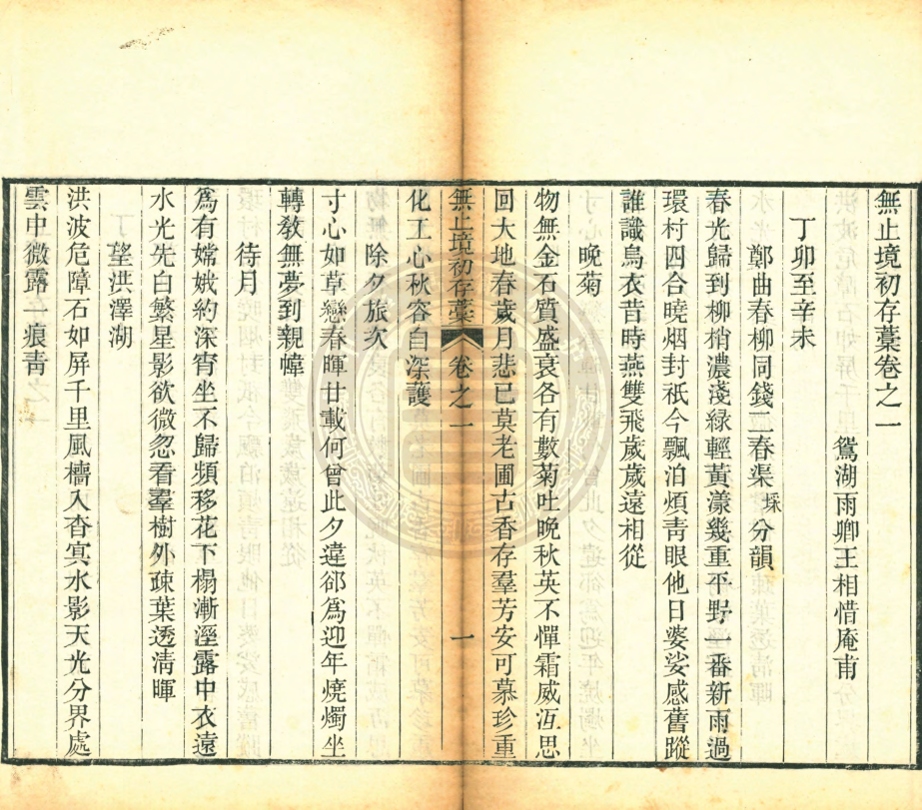 無止境初存藁卷之一
鴛湖雨卿王相惜庵甫
丁卯至辛未
鄭曲春柳同錢二春渠埰分韻
春光歸到柳梢濃淺綠輕黃漾幾重平野一番新雨過
環村四合曉烟封祇今飄泊煩靑眼他日婆娑感舊蹤
誰識烏衣昔時燕雙飛歲歲遠相從
晚菊
物無金石質盛衰各有數菊吐晚秋英不憚霜威沍思
回大地春歲月悲已莫老圃古香存羣芳安可慕珍重
無止境初存藁 卷之一 一
化工心秋容自深護
除夕旅次
寸心如草戀春暉廿載何曾此夕違郤爲迎年燒燭坐
轉敎無夢到親幃
待月
爲有嫦娥約深宵坐不歸頻移花下榻漸溼露中衣遠
水光先白繁星影欲微忽看羣樹外疎葉透淸暉
望洪澤湖
洪波危障石如屏千里風檣入杳冥水影天光分界處
雲中微露一痕靑